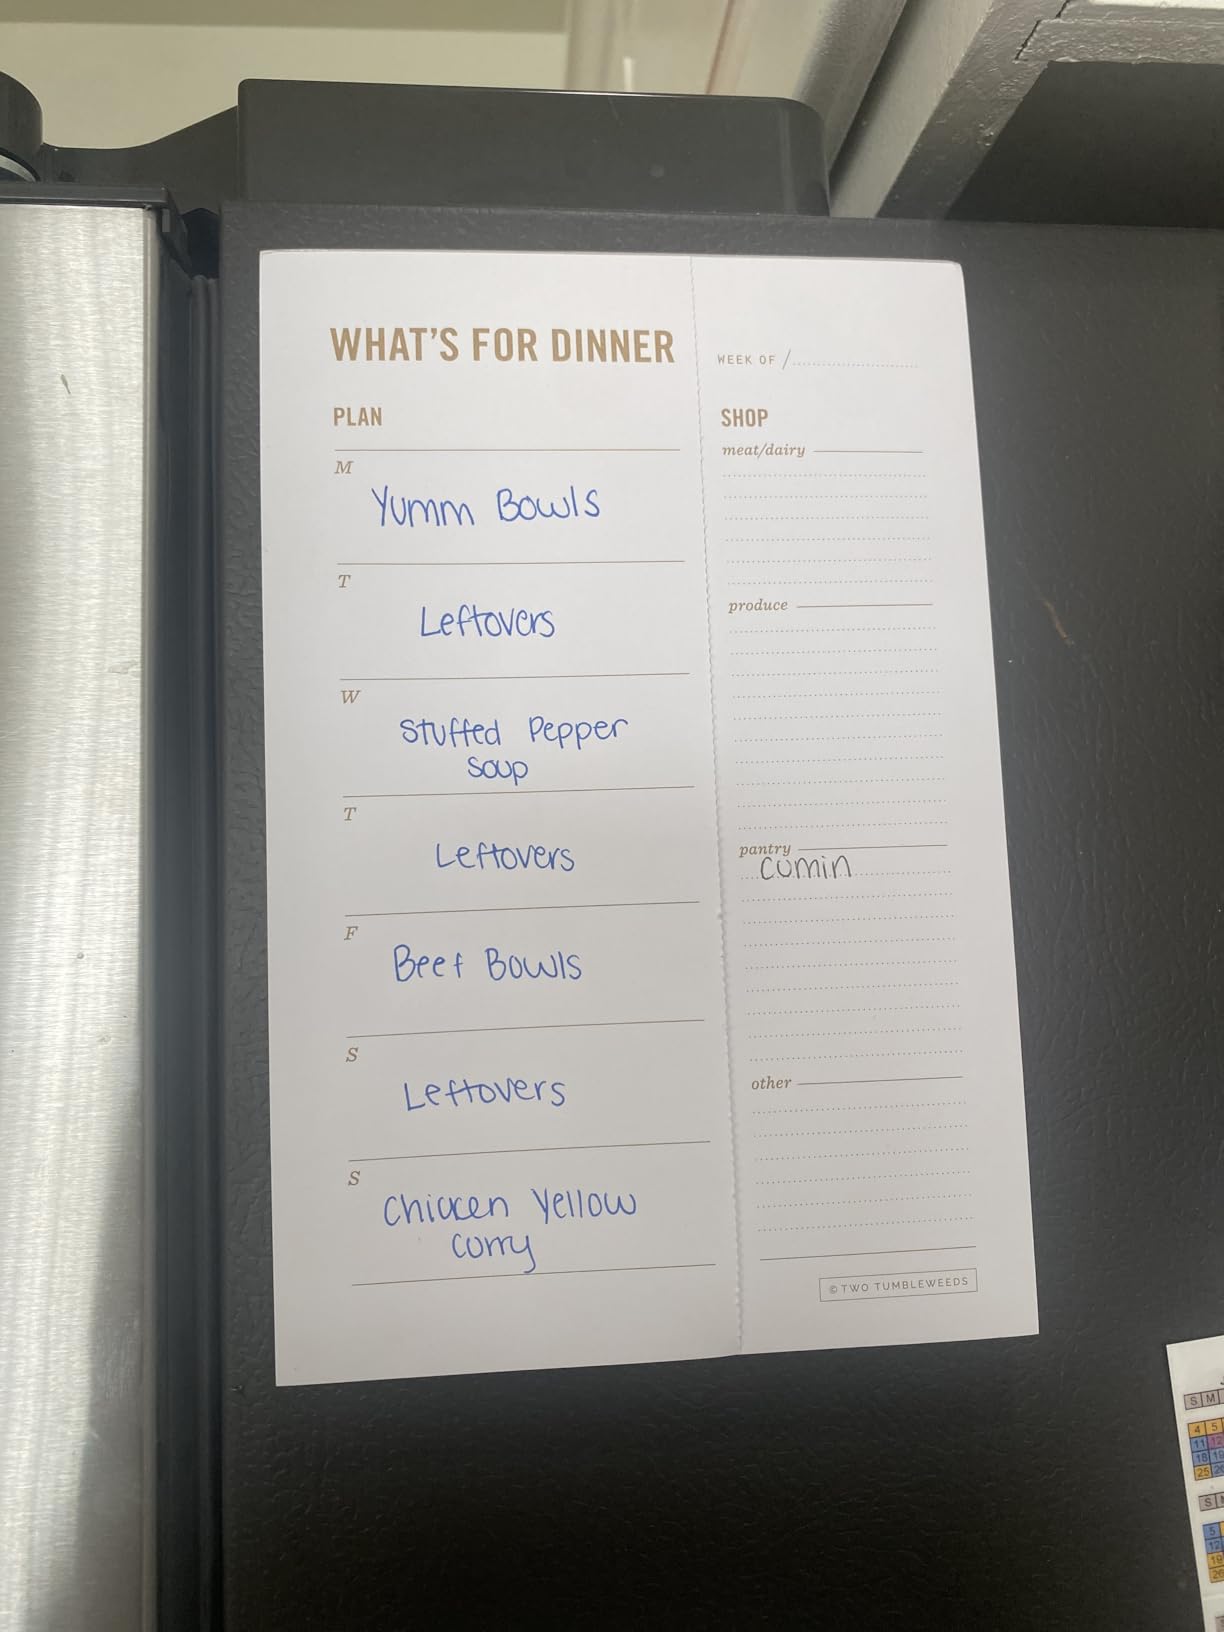 WHAT'S FOR DINNER
PLAN
M
Yumm Bowls
T
Leftovers
W
Stuffed Pepper
Soup
T
Leftovers
F
Beef Bowls
S
Leftovers
S
Chicken Yellow
Curry
WEEK OF /
SHOP
meat/dairy
produce
pantry
cumin
other
© TWO TUMBLEWEEDS
S M
4 5
11 12
18 19
25
S
5
12
19
26